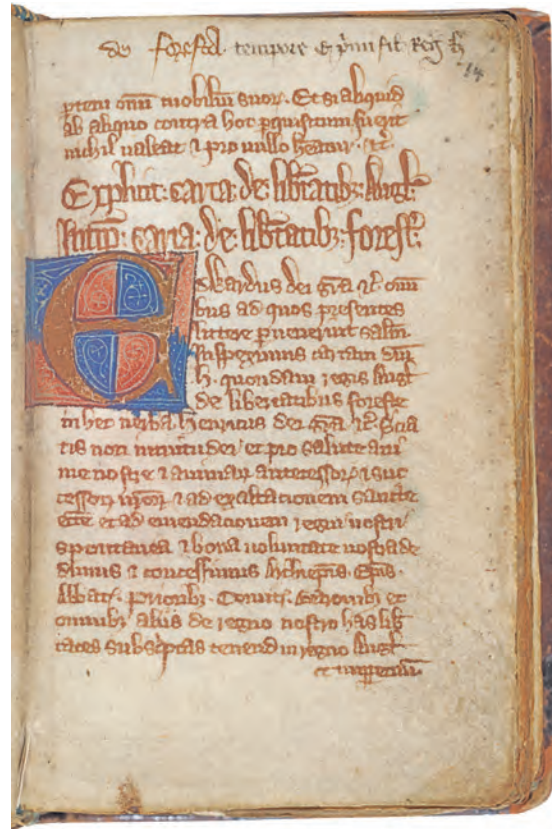 de foresta tempore E p'mi fil Reg h
14
pteni om̄i mobiliū suoꝝ. Et si aliquid
ab aliquo contra hoc ꝑquisitum fuerit
nichil ualeat ⁊ pro nullo h̄eatur. ⁊c̄
Explicit: carta: de: lib̄tatibꝫ: Angl'
Incip̄: carta: de: lib̄tatibꝫ: forest'.
Edwardus dei gr̄a ⁊c̄ om̄i
bus ad quos presentes
littere ꝑuenerint salt̄m.
Inspeximus cartam dn̄i
h. quondam regis Angl'
de libertatibus foreste
in hec uerba henricus dei gr̄a ⁊c̄. Scia
tis nos intuitu dei et pro salute ani
me nostre ⁊ animaꝝ antecessoꝝ ⁊ suc
cessoꝝ nr̄oꝝ ⁊ ad exaltacionem sancte
ecc̄e et ad emendacionem regni nostri
spontanea ⁊ bona uoluntate nostra de
dimus ⁊ concessimus Archiep̄is. Ep̄is.
Abbatꝫ. prioribꝫ. Comitꝫ. Baronibꝫ et
omnibꝫ aliis de regno nostro has lib̄
tates subsc'ptas tenend in regno Angl'
et imppetuū